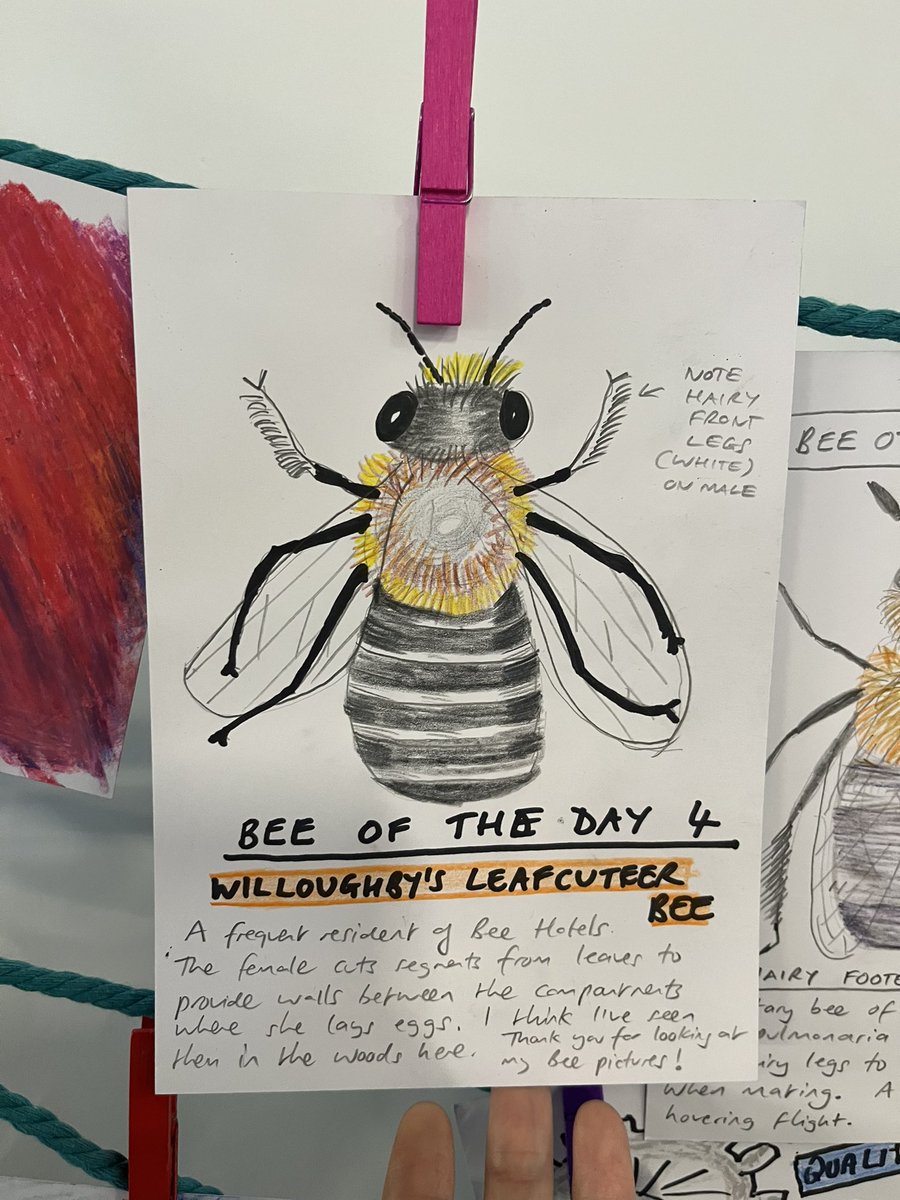 NOTE
HAIRY
FRONT
LEGS
(WHITE)
ON MALE
BEE OF THE DAY 4
WILLOUGHBY'S LEAFCUTEER
BEE
A frequent resident of Bee Hotels.
The female cuts segments from leaves to
provide walls between the compartments
where she lays eggs. I think I've seen
them in the woods here.
Thank you for looking at
my Bee pictures!
BEE
HAIRY FOOTE
bee of
pulmonaria
legs to
when mating. A
hovering flight.
QUALIT